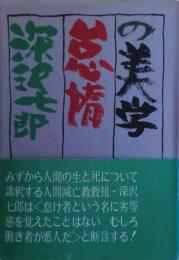 怠惰
の美学
深沢七郎
みずから人間の生と死について
講釈する人間滅亡教教祖・深沢
七郎は〈怠け者という名に劣等
感を覚えたことはない むしろ
働き者が悪人だ〉と断言する!